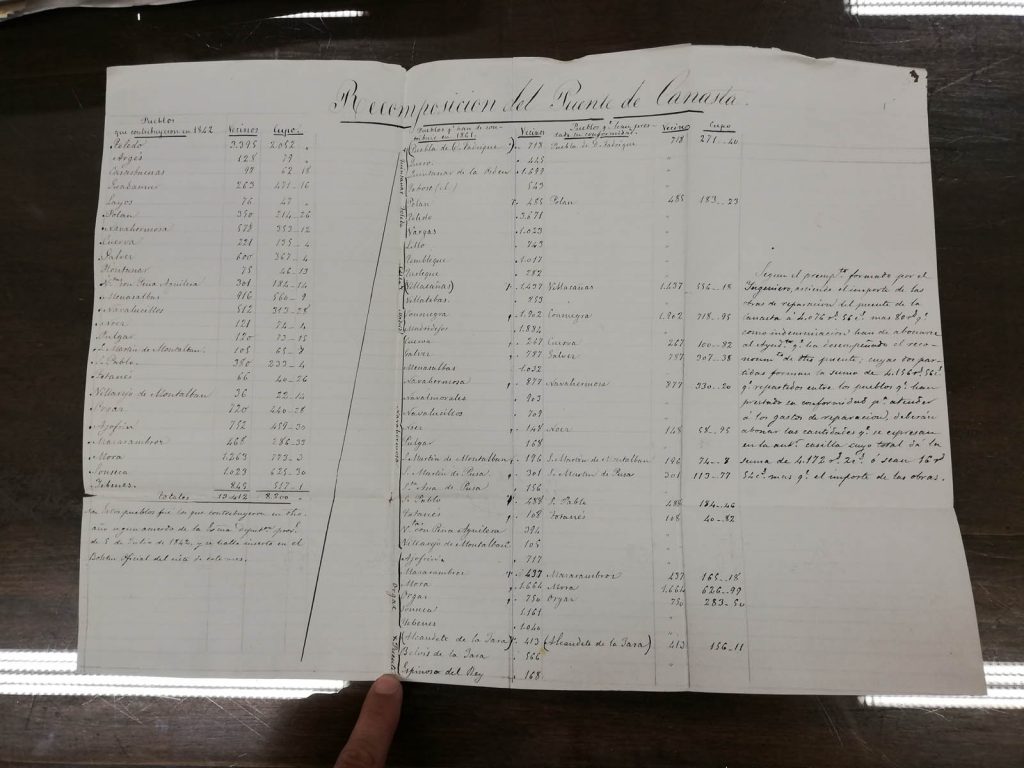 Recomposicion del Puente de Canasta.
Pueblos
que contribuyeron en 1842 Vecinos Cupo.
Toledo 3.395 2.052 "
Argés 128 79 "
Casasbuenas 98 62 18
Guadamur 263 471-16
Layos 76 47 "
Polan 350 214-26
Navahermosa 578 353-12
Cuerva 221 135-4
Galvez 600 367-4
Hontanar 75 46-13
Nª Srª con Pena Aguilera 301 184-14
Menasalbas 916 560-9
Navalucillos 512 313-28
Noez 121 74-4
Pulgar 120 73-15
S. Martin de Montalban 105 65-8
S. Pablo 380 233-4
Totanés 66 40-26
Villarejo de Montalban 36 22-14
Orgaz 720 440-28
Ajofrin 752 459-30
Mazarambroz 468 286-33
Mora 1.263 773-3
Sonseca 1.023 625-30
Yebenes 845 517-1
Totales 13.412 8.200 "
Boletin Oficial del siete de este mes.
Pueblos qe. han de contribuir en 1861. Vecinos Pueblos qe. han prestado su conformidad. Vecinos Cupo
(Puebla de D. Fadrique) 718 Puebla de D. Fadrique 718 271..40
Quero 445
Quintanar de la Orden 1.699
Toboso (el) 543
Polan 485 Polan 485 183..23
Toledo 3.671
Yargas 1.023
Lillo 743
Tembleque 1.017
Turleque 282
Villacañas 1.437 Villacañas 1.437 556-18
Villatobas 853
Consuegra 1.902 Consuegra 1.902 718..95
Madridejos 1.884
Cuerva 267 Cuerva 267 100-82
Galvez 787 Galvez 787 307-38
Menasalbas 1.032
Navahermosa 877 Navahermosa 877 330..20
Navalmorales 903
Navalucillos 709
Noez 148 Noez 148 58..95
Pulgar 168
S. Martin de Montalban 196 S. Martin de Montalban 196 74-8
S. Martin de Pusa 301 S. Martin de Pusa 301 113-77
Sta. Ana de Pusa 156
S. Pablo 488 S. Pablo 488 184-46
Totanés 108 Totanés 108 40-82
Vtas. con Pena Aguilera 394
Villarejo de Montalban 105
Ajofrin 717
Mazarambroz 437 Mazarambroz 437 165-18
Mora 1.664 Mora 1.664 626-99
Orgaz 750 Orgaz 750 283-50
Sonseca 1.161
Yebenes 1.040
(Alcaudete de la Jara) 413 (Alcaudete de la Jara) 413 156-11
Belvis de la Jara 566
Espinosa del Rey 168
Segun el presupto. formado por el
Ingeniero, asciende el importe de las
obras de reparacion del puente de la
Canasta á 4.076 rs. 56 cs. mas 80 rs. qe.
como indemnizacion han de abonarse
al Ayudte. qe. ha desempeñado el reco-
nocimto. de dho puente; cuyas dos par-
tidas forman la suma de 4.156 rs. 56 cs.
qe. repartidos entre los pueblos qe. han
prestado su conformidad pa. atender
á los gastos de reparacion, deberán
abonar las cantidades qe. se expresan
en la antr. casilla cuyo total dá la
suma de 4.172 rs. 2 cs. ó sean 16 rs.
54 cs. mas qe. el importe de las obras.